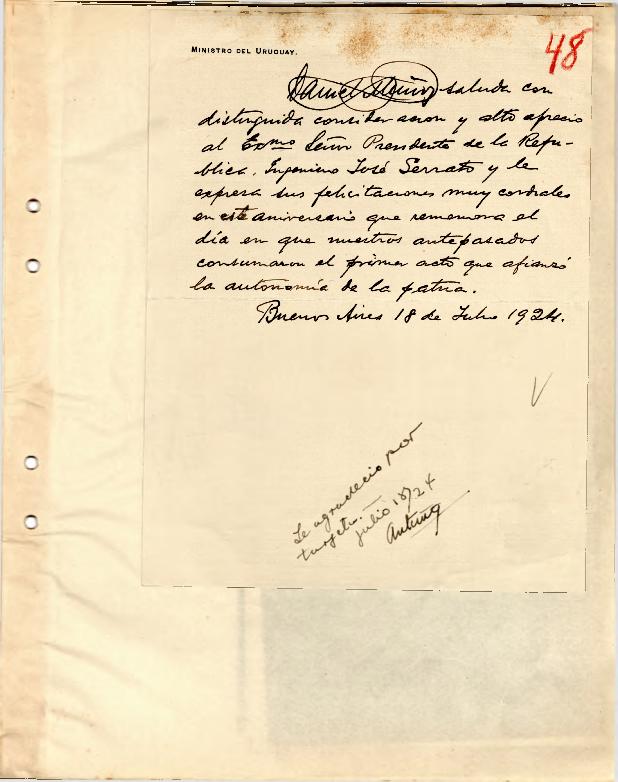 MINISTRO DEL URUGUAY.
48
Daniel Muñoz saluda con
distinguida consideracion y alto aprecio
al Exmo Señor Presidente de la Repu-
blica, Ingeniero José Serrato y le
expresa sus felicitaciones muy cordiales
en este aniversario que rememora el
día en que nuestros antepasados
consumaron el primer acto que afianzó
la autonomía de la patria.
Buenos Aires 18 de Julio 1924.
Se agradecio por
tarjeta.—
julio 18/24